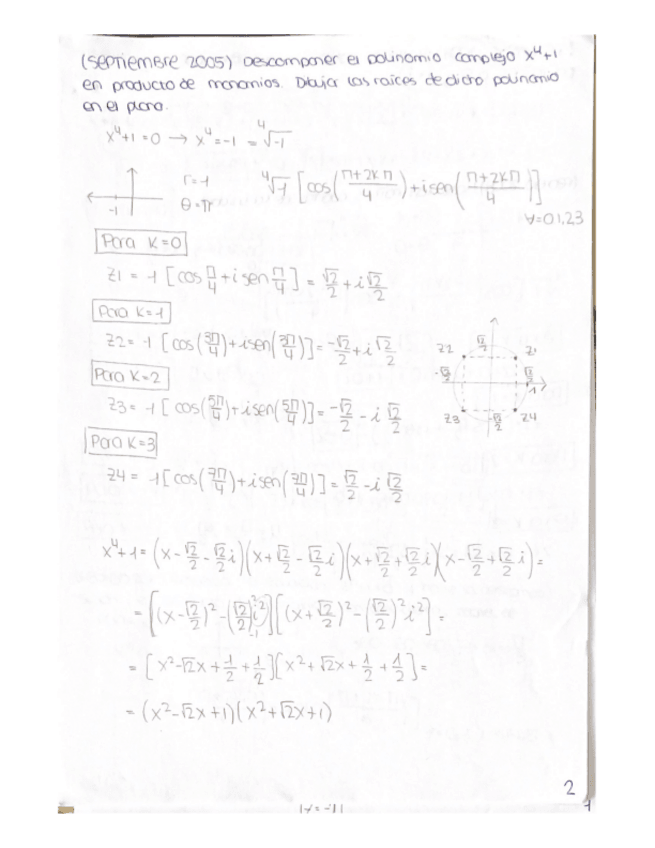 (Septiembre 2005) Descomponer el polinomio complejo x⁴+1
en producto de monomios. Dibujar las raíces de dicho polinomio
en el plano.
x⁴+1=0 → x⁴=-1 = ⁴√-1
-1
r=1
θ=π
⁴√1 [cos((π+2kπ)/4)+i sen((π+2kπ)/4)]
∀=0,1,2,3
Para K=0
Z1 = 1 [cos π/4 + i sen π/4] = √2/2 + i √2/2
Para K=1
Z2 = 1 [cos(3π/4)+i sen(3π/4)] = -√2/2 + i √2/2
Para K=2
Z3 = 1 [cos(5π/4)+i sen(5π/4)] = -√2/2 - i √2/2
Para K=3
Z4 = 1 [cos(7π/4)+i sen(7π/4)] = √2/2 - i √2/2
Z2 √2/2 Z1
-√2/2 √2/2 1
Z3 -√2/2 Z4
x⁴+1 = (x-√2/2-√2/2 i)(x+√2/2-√2/2 i)(x+√2/2+√2/2 i)(x-√2/2+√2/2 i) =
= [(x-√2/2)²-(√2/2)² i²][(x+√2/2)²-(√2/2)² i²] =
-1
= [x²-√2x+1/2+1/2][x²+√2x+1/2+1/2] =
= (x²-√2x+1)(x²+√2x+1)
2